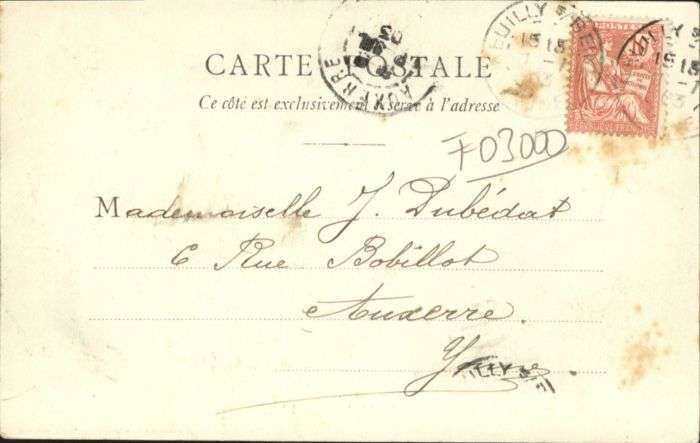 CARTE POSTALE
Ce côté est exclusivement réservé à l'adresse
AUXERRE
03
NEUILLY S/
15
POSTES
F03000
Mademoiselle J. Dubédat
6 Rue Bobillot
Auxerre
Y
ILLY S